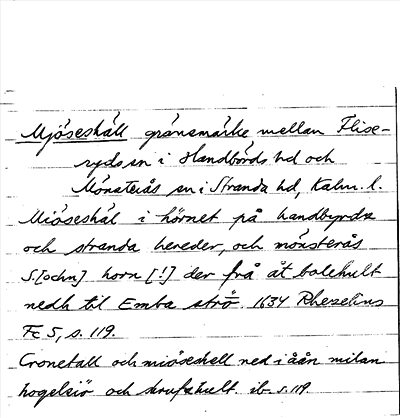 Mjöseskáll gränsmärke mellan Flise-
ryds sn i Handbörds hd och
Mönsterås sn i Stranda hd, Kalm. l.
Miöseskál i hörnet på handbyrdz
och stranda hereder, och mönsterås
S[ochn] horn [!] der frå åt bolehult
nedh til Emba strö 1634 Rhezelius
Fc 5, s. 119.
Cronetall och miöseskall ned i åån milan
hogelsiö och krufskult ib. s. 119.